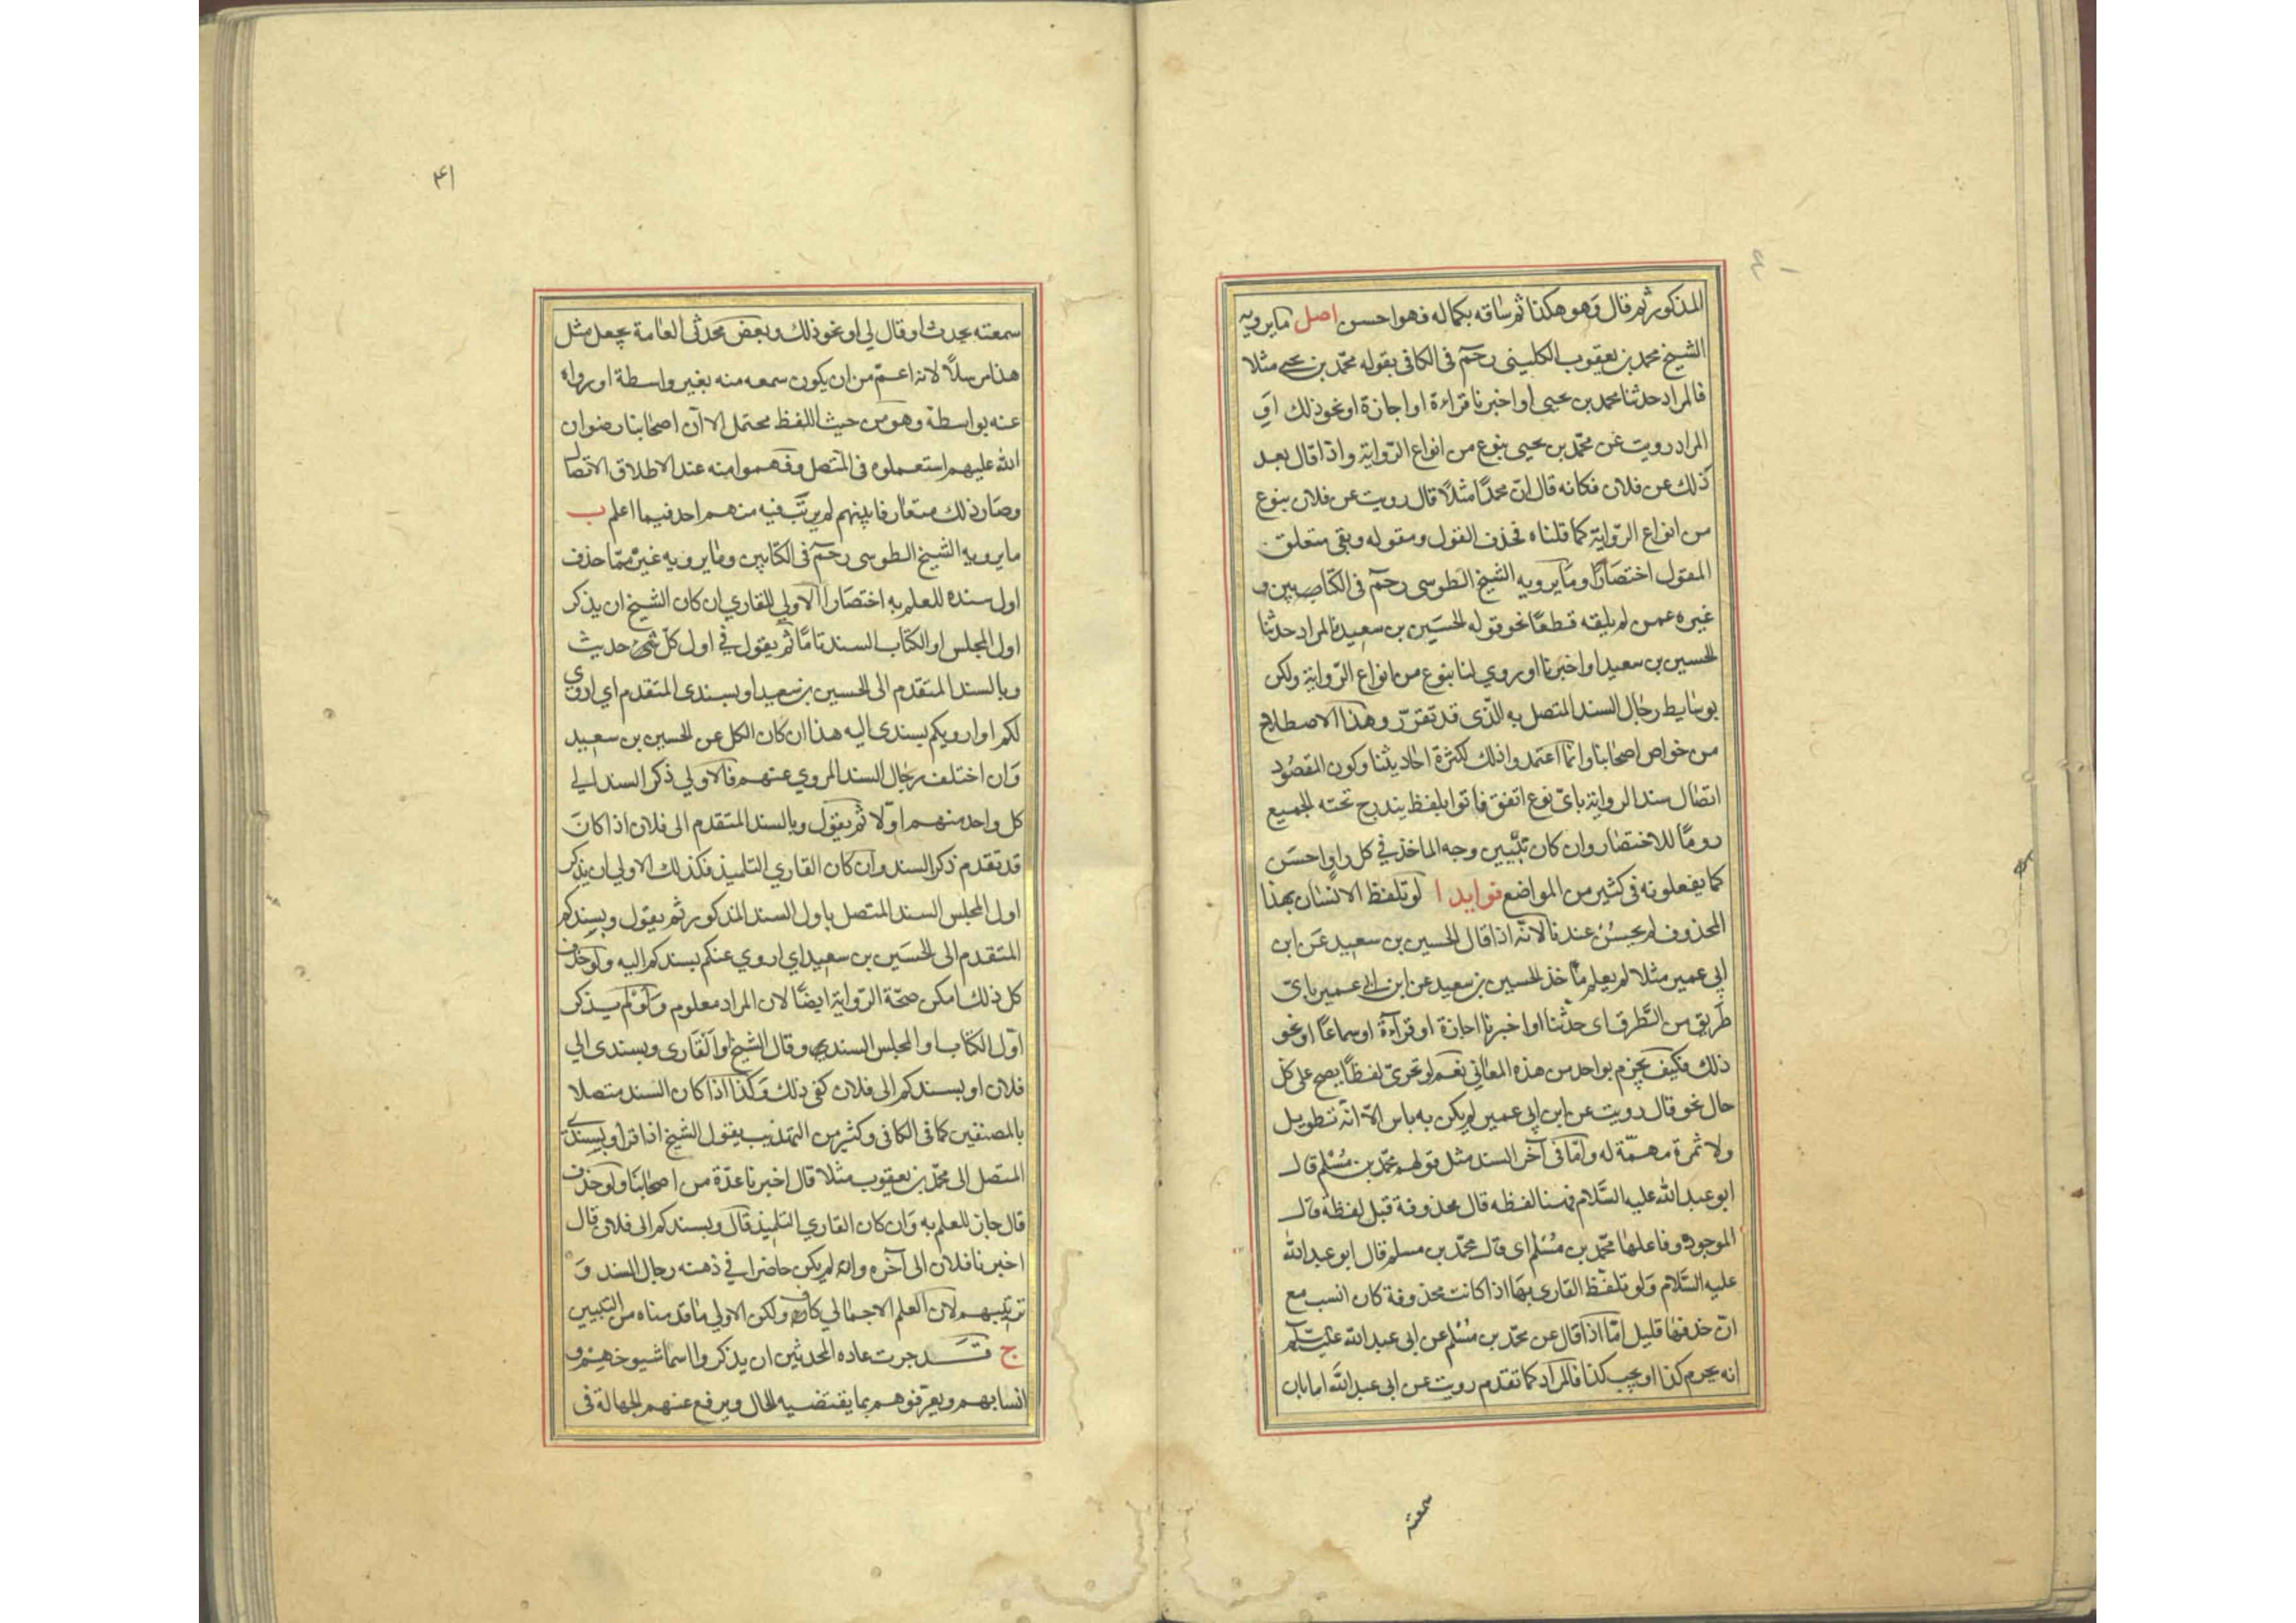 المذكور ثم قال وهو هكذا ثم ساقه بكماله فهو احسن اصل ما يرويه
الشيخ محمد بن يعقوب الكليني رحمه في الكافي بقوله محمد بن يحيى مثلا
فالمراد حدثنا محمد بن يحيى او اخبرنا قراءة او اجازة او نحو ذلك اي
المراد رويت عن محمد بن يحيى بنوع من انواع الرواية واذا قال بعد
ذلك عن فلان فكانه قال ان محمدًا مثلًا قال رويت عن فلان بنوع
من انواع الرواية كما قلناه فحذف القول ومقوله وبقي متعلق
المقول اختصارًا وما يرويه الشيخ الطوسي رحمه في الكتابين و
غيره عمن لم يلقه قطعًا نحو قوله الحسين بن سعيد فالمراد حدثنا
الحسين بن سعيد او اخبرنا او روي لنا بنوع من انواع الرواية ولكن
بوسايط رجال السند المتصل به الذي قد تقرر وهذا الاصطلاح
من خواص اصحابنا وانما اعتمدوا ذلك لكثرة احاديثنا وكون المقصود
اتصال سند الرواية باي نوع اتفق فاتوا بلفظ يندرج تحته الجميع
رومًا للاختصار وان كان تبيين وجه الماخذ في كل راو احسن
كما يفعلونه في كثير من المواضع فوايد ا لو تلفظ الانسان بهذا
المحذوف لم يحسن عندنا لانه اذا قال الحسين بن سعيد عن ابن
ابي عمير مثلا لم يعلم ماخذ الحسين بن سعيد عن ابن ابي عمير باي
طريق من الطرق اي حدثنا او اخبرنا اجازة او قراءة او سماعًا او نحو
ذلك فكيف يجزم بواحد من هذه المعاني نعم لو تحرى لفظًا يصح على كل
حال نحو قال رويت عن ابن ابي عمير لم يكن به باس الا انه تطويل
ولا ثمرة مهمة له واما في آخر السند مثل قولهم محمد بن مسلم قال
ابو عبد الله عليه السلام فهنا لفظه قال محذوفة قبل لفظة قال
الموجودة وفاعلها محمد بن مسلم اي قال محمد بن مسلم قال ابو عبد الله
عليه السلام ولو تلفظ القاري بها اذا كانت محذوفة كان انسب مع
ان حذفها قليل اما اذا قال عن محمد بن مسلم عن ابي عبد الله
انه يحرم كذا او يجب كذا فالمراد كما تقدم رويت عن ابي عبد الله اما بان
سمعته
۴۱
سمعته يحدث او قال لي او نحو ذلك وبعض محدثي العامة يجعل مثل
هذا مرسلًا لانه اعم من ان يكون سمعه منه بغير واسطة او رواه
عنه بواسطة وهو من حيث اللفظ محتمل الا ان اصحابنا رضوان
الله عليهم استعملوه في المتصل وفهموا منه عند الاطلاق الاتصال
وصار ذلك متعارفا بينهم لم يرتب فيه منهم احد فيما اعلم ب
ما يرويه الشيخ الطوسي رحمه في الكتابين وما يرويه غيره مما حذف
اول سنده للعلم به اختصارا الاولي للقاري ان كان الشيخ ان يذكر
اول المجلس او الكتاب السند تامًا ثم يقول في اول كل حديث
وبالسند المتقدم الى الحسين بن سعيد او بسندي المتقدم اي اروي
لكم او ارويكم بسندي اليه هذا ان كان الكل عن الحسين بن سعيد
وان اختلف رجال السند المروي عنهم فالاولي ذكر السند الي
كل واحد منهم اولا ثم يقول وبالسند المتقدم الى فلان اذا كان
قد تقدم ذكر السند وان كان القاري التلميذ فكذلك الاولي ان يذكر
اول المجلس السند المتصل باول السند المذكور ثم يقول وبسندكم
المتقدم الى الحسين بن سعيد اي اروي عنكم بسندكم اليه ولو حذف
كل ذلك امكن صحة الرواية ايضًا لان المراد معلوم ولو لم يذكر
اول الكتاب او المجلس السند وقال الشيخ او القاري وبسندي الي
فلان او بسندكم الى فلان كفى ذلك وكذا اذا كان السند متصلا
بالمصنفين كما في الكافي وكثير من التهذيب يقول الشيخ اذا قرا وبسندي
المتصل الى محمد بن يعقوب مثلا قال اخبرنا عدة من اصحابنا ولو حذف
قال جاز للعلم به وان كان القاري التلميذ قال وبسندكم الى فلان قال
اخبرنا فلان الى آخره وانه لم يكن حاضرا في ذهنه رجال السند و
ترتيبهم لان العلم الاجمالي كاف ولكن الاولي ما قدمناه من التبيين
ج قد جرت عاده المحدثين ان يذكروا اسما شيوخهم و
انسابهم ويعرفوهم بما يقتضيه الحال ويرفع عنهم الجهالة في